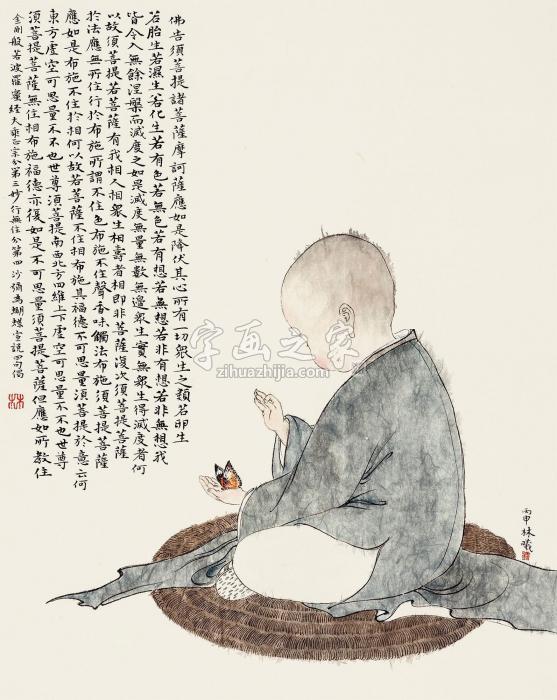 佛告須菩提諸菩薩摩訶薩應如是降伏其心所有一切眾生之類若卵生
若胎生若濕生若化生若有色若無色若有想若無想若非有想若非無想我
皆令入無餘涅槃而滅度之如是滅度無量無數無邊眾生實無眾生得滅度者何
以故須菩提若菩薩有我相人相眾生相壽者相即非菩薩復次須菩提菩薩
於法應無所住行於布施所謂不住色布施不住聲香味觸法布施須菩提菩薩
應如是布施不住於相何以故若菩薩不住相布施其福德不可思量須菩提於意云何
東方虛空可思量不不也世尊須菩提南西北方四維上下虛空可思量不不也世尊
須菩提菩薩無住相布施福德亦復如是不可思量須菩提菩薩但應如所教住
金剛般若波羅蜜經大乘正宗分第三妙行無住分第四沙彌為蝴蝶宣說四句偈
字画之家
zihuazhijia.com
丙申林曦